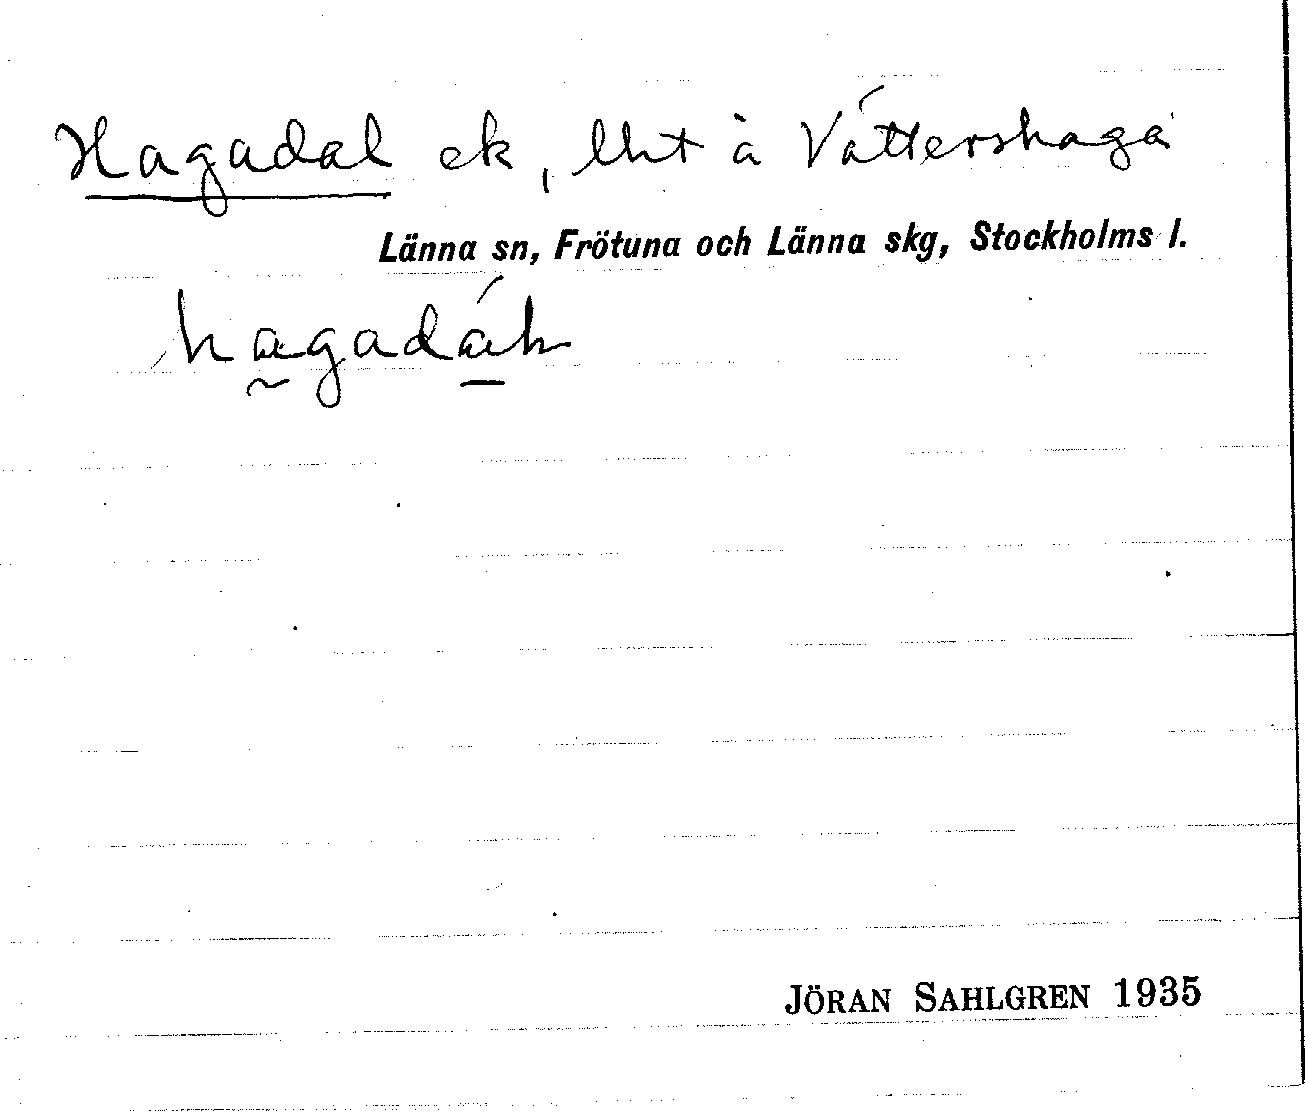 Hagadal ek, lht à Váttershaga
Länna sn, Frötuna och Länna skg, Stockholms l.
JÖRAN SAHLGREN 1935